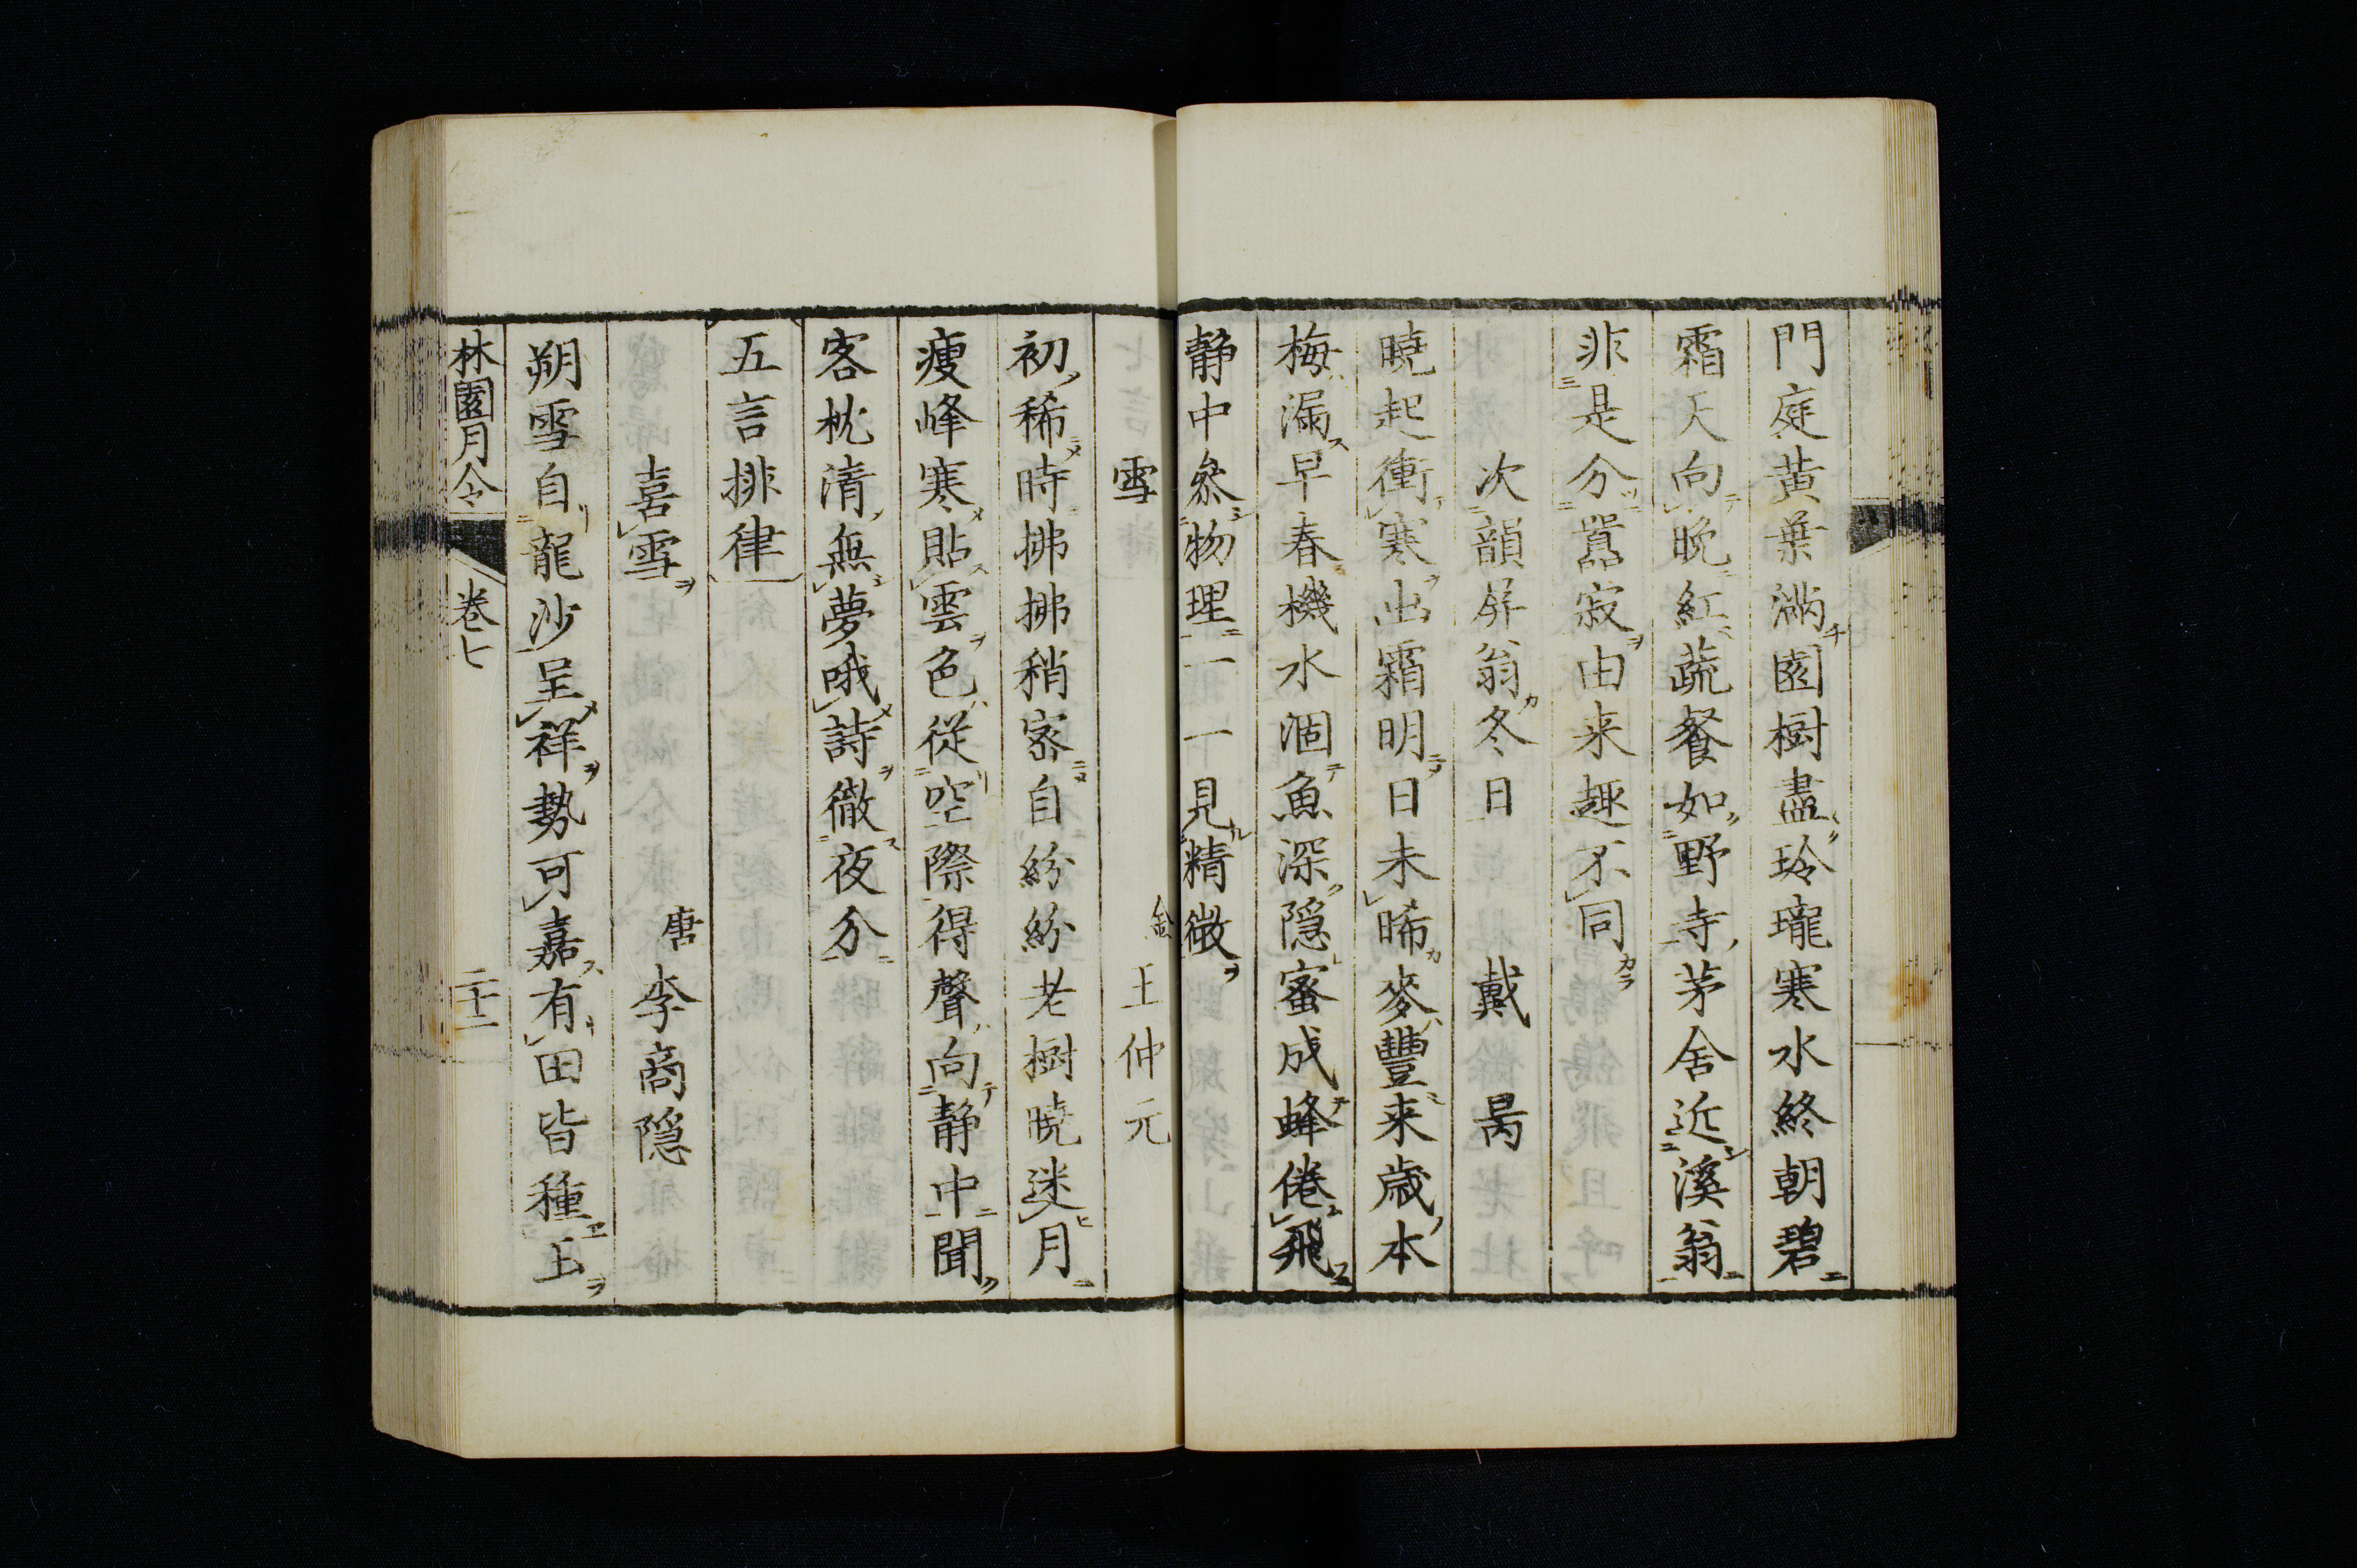 門庭黄葉満園樹盡玲瓏寒水終朝碧
霜天向晩紅蔬餐如野寺茅舍近溪翁
非是分囂寂由来趣不同
次韻屏翁冬日 戴昺
曉起衝寒出霜明日未晞麥豐来歳本
梅漏早春機水涸魚深隠蜜成蜂倦飛
静中叅物理一一見精微
雪 金 王仲元
初稀時拂拂稍宻自紛紛老樹曉迷月
瘦峰寒貼雲色從空際得聲向静中聞
客枕清無夢哦詩徹夜分
五言排律
喜雪 唐 李商隠
朔雪自龍沙呈祥勢可嘉有田皆種玉
林園月令 卷七 二十二